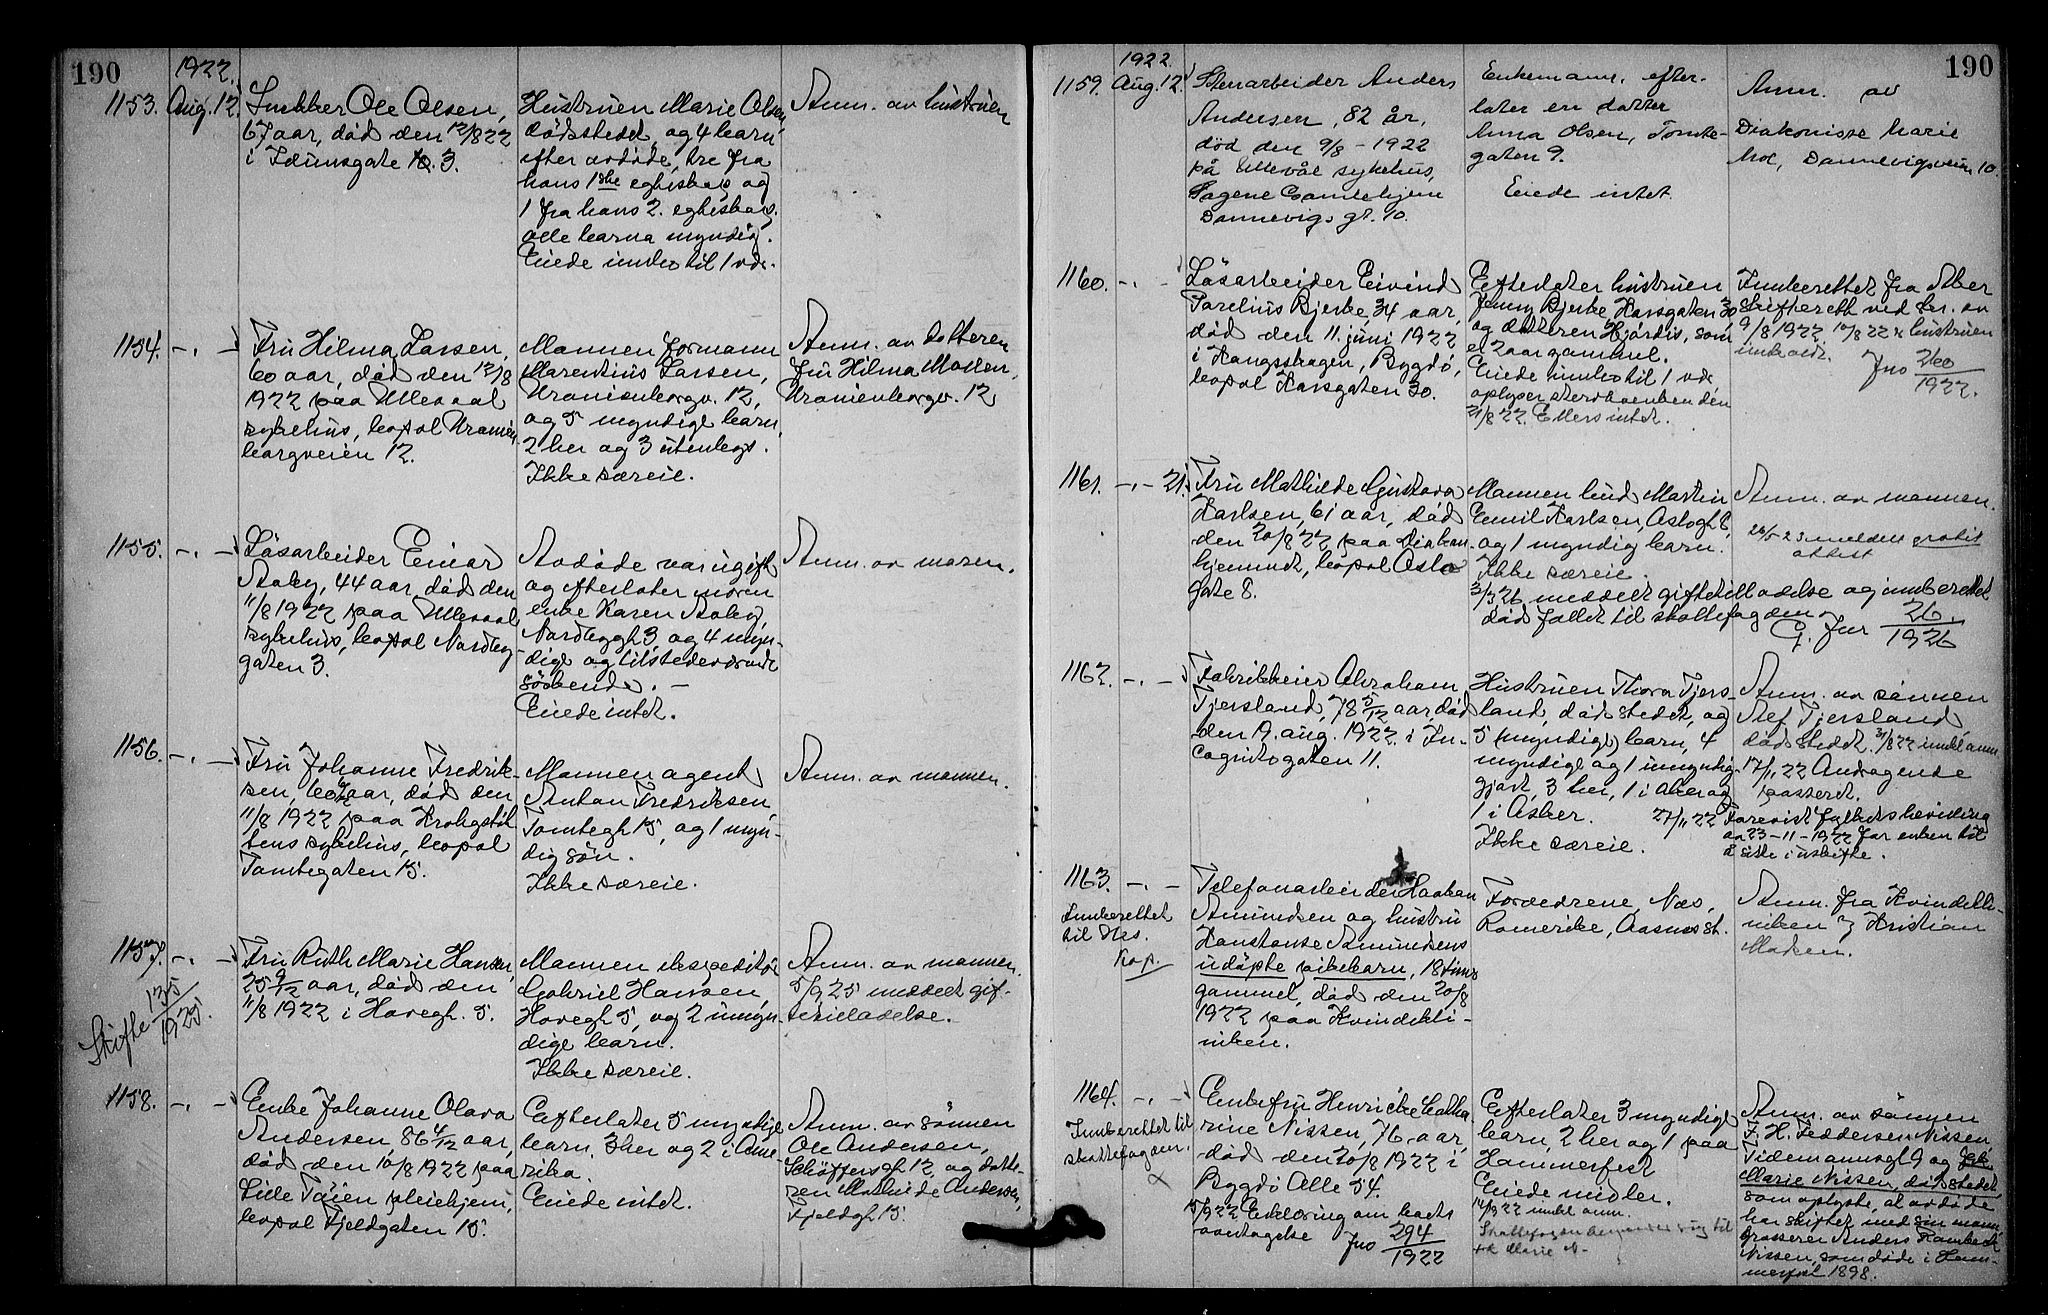 190
1922.
1153. Aug. 12.
Snekker Ole Olsen,
67 aar, död den 12/8 22
i Idunsgate 3.
Hustruen Marie Olsen
dödsstedet, og 4 barn
efter avdöde, tre fra
hans 1ste egteskap og
1 fra hans 2. egteskap.
alle barna myndig.
Eiede indbo til 1 vdr.
Anm. av hustruen
1154. -"- -
Fru Hilma Larsen,
60 aar, död den 12/8
1922 paa Ullevaal
sykehus, bopæl Uranien-
borgveien 12.
Mannen formann
Marentius Larsen,
Uranienborgv. 12,
og 5 myndige barn,
2 her og 3 utenbys.
Ikke særeie.
Anm. av datteren
fru Hilma Madsen,
Uranienborgv. 12
1155. -"- -
Lösarbeider Einar
Aaby, 44 aar, död den
11/8 1922 paa Ullevaal
sykehus, bopæl Nordbyg-
gaten 3.
Avdöde var ugift
og efterlater moren
enke Karen Aaby,
Nordbyggt 3, og 4 myn-
dige og tilstedeværende
söskende. -
Eiede intet.
Anm. av moren.
1156. -"- -
Fru Johanne Fredrik-
sen, aar, död den
11/8 1922 paa Krohgstöt-
tens sykehus, bopæl
Tomtegaten 15.
Mannen agent
Anton Fredriksen
Tomtegt 15, og 1 myn-
dig sön.
Ikke særeie.
Anm. av mannen.
1157. -"- -
Skifte 135/1925.
Fru Ruth Marie Hansen,
25 9/12 aar, död den
11/8 1922 i Haregt. 5.
Mannen ekspeditör
Gabriel Hansen,
Haregt 5, og 2 umyn-
dige barn.
Ikke særeie.
Anm. av mannen.
5/9 25 meddelt gif-
tetilladelse.
1158. -"- -
Enke Johanne Olava
Andersen 86 4/12 aar,
död den 10/8 1922 paa
Lille Töien pleiehjem,
bopæl Fjeldgaten 15.
Efterlater 5 myndige
barn, 3 her og 2 i Ame-
rika.
Eiede intet.
Anm. av sönnen
Ole Andersen,
Schöffers gt. 12 og datte-
ren Mathilde Andersen,
Fjeldgt 15.
190
1922.
1159. Aug. 12.
Stenarbeider Anders
Andersen, 82 år,
död den 9/8 - 1922
på Ullevål sykehus,
Sagene Gamlehjem
Dannevigs gt. 10.
Enkemann, efter-
later en datter
Anna Olsen, Tomte-
gaten 9.
Eiede intet.
Anm. av
Diakonisse Marie
Moe, Dannevigsveien 10.
1160. -"- -
Lösarbeider Eivind
Torelius Bjerke, 34 aar,
död den 11. juni 1922
i Kongsskogen, Bygdö,
bopæl Karsgaten 30.
Efterlater hustruen
Jenny Bjerke Karsgaten 30,
og datteren Hjördis, som
er 2 aar gammel.
Eiede innbo til 1 vdr,
oplyser sterboenken den
21/8 22. Ellers intet.
Innberettet fra Aker
skifterett ved br. av
9/8 1922
hustruen
innkaldt.
Jno 260/1922.
1161. -"- 21.
Fru Mathilde Gustava
Karlsen, 61 aar, död
den 20/8 22 paa Diakon-
hjemmet, bopæl Oslo
gate 8.
Mannen bud Martin
Emil Karlsen, Oslogt 8,
og 1 myndig barn.
Ikke særeie.
3/3 26 meddelt giftetilladelse og innberettet
död faldet til skattefogden
Jnr 26/1926
Anm. av mannen.
24/5 23 meddelt gratis
attest
1162. -"- -
Fabrikkeier Abraham
Tjersland, 78 5/12 aar, död
den 19. aug. 1922 i In-
cognitogaten 11.
Hustruen Thora Tjers-
land, dödsstedet, og
5 (myndige) barn, 4
myndige og 1 umyndig-
gjort, 3 her, 1 i Aker og
1 i Asker.
Ikke særeie.
Anm. av sönnen
Alef Tjersland,
dödsstedet. 31/8 22 innk anm.
17/11 22 Andragende
passeret.
27/11 22 Forevist fylkets bevilling
av 23-11-1922 for enken til
å sitte i uskifte.
1163. -"- -
Innberettet
til Nes.
Kop.
Telefonarbeider Haakon
Amundsen og hustru
Konstanse Amundsens
udöpte pikebarn, 18 timer
gammel, död den 20/8
1922 paa Kvindekli-
niken.
Forældrene, Nes,
Romerike, Aarnes st.
Anm. fra Kvindekli-
niken v Kristian
Madsen.
1164. -"- -
Innberettet til
skattefogden.
Enkefru Henricke Catha-
rine Nissen, 76 aar,
död den 20/8 1922 i
Bygdö Alle 54.
5/9 22 Erklæring om boets
overtagelse
Jno 294/1922
Efterlater 3 myndige
barn, 2 her og 1 paa
Hammerfest
Eiede midler.
14/9 22 innk anm.
Anm. av sönnen
F. H. Feddersen Nissen,
Tidemannsgt 9 og frk.
Marie Nissen, dödsstedet,
som oplyste, at avdöde
har skiftet med sin mann
grosserer Anders Rambech
Nissen, som döde i Ham-
merfest 1898.